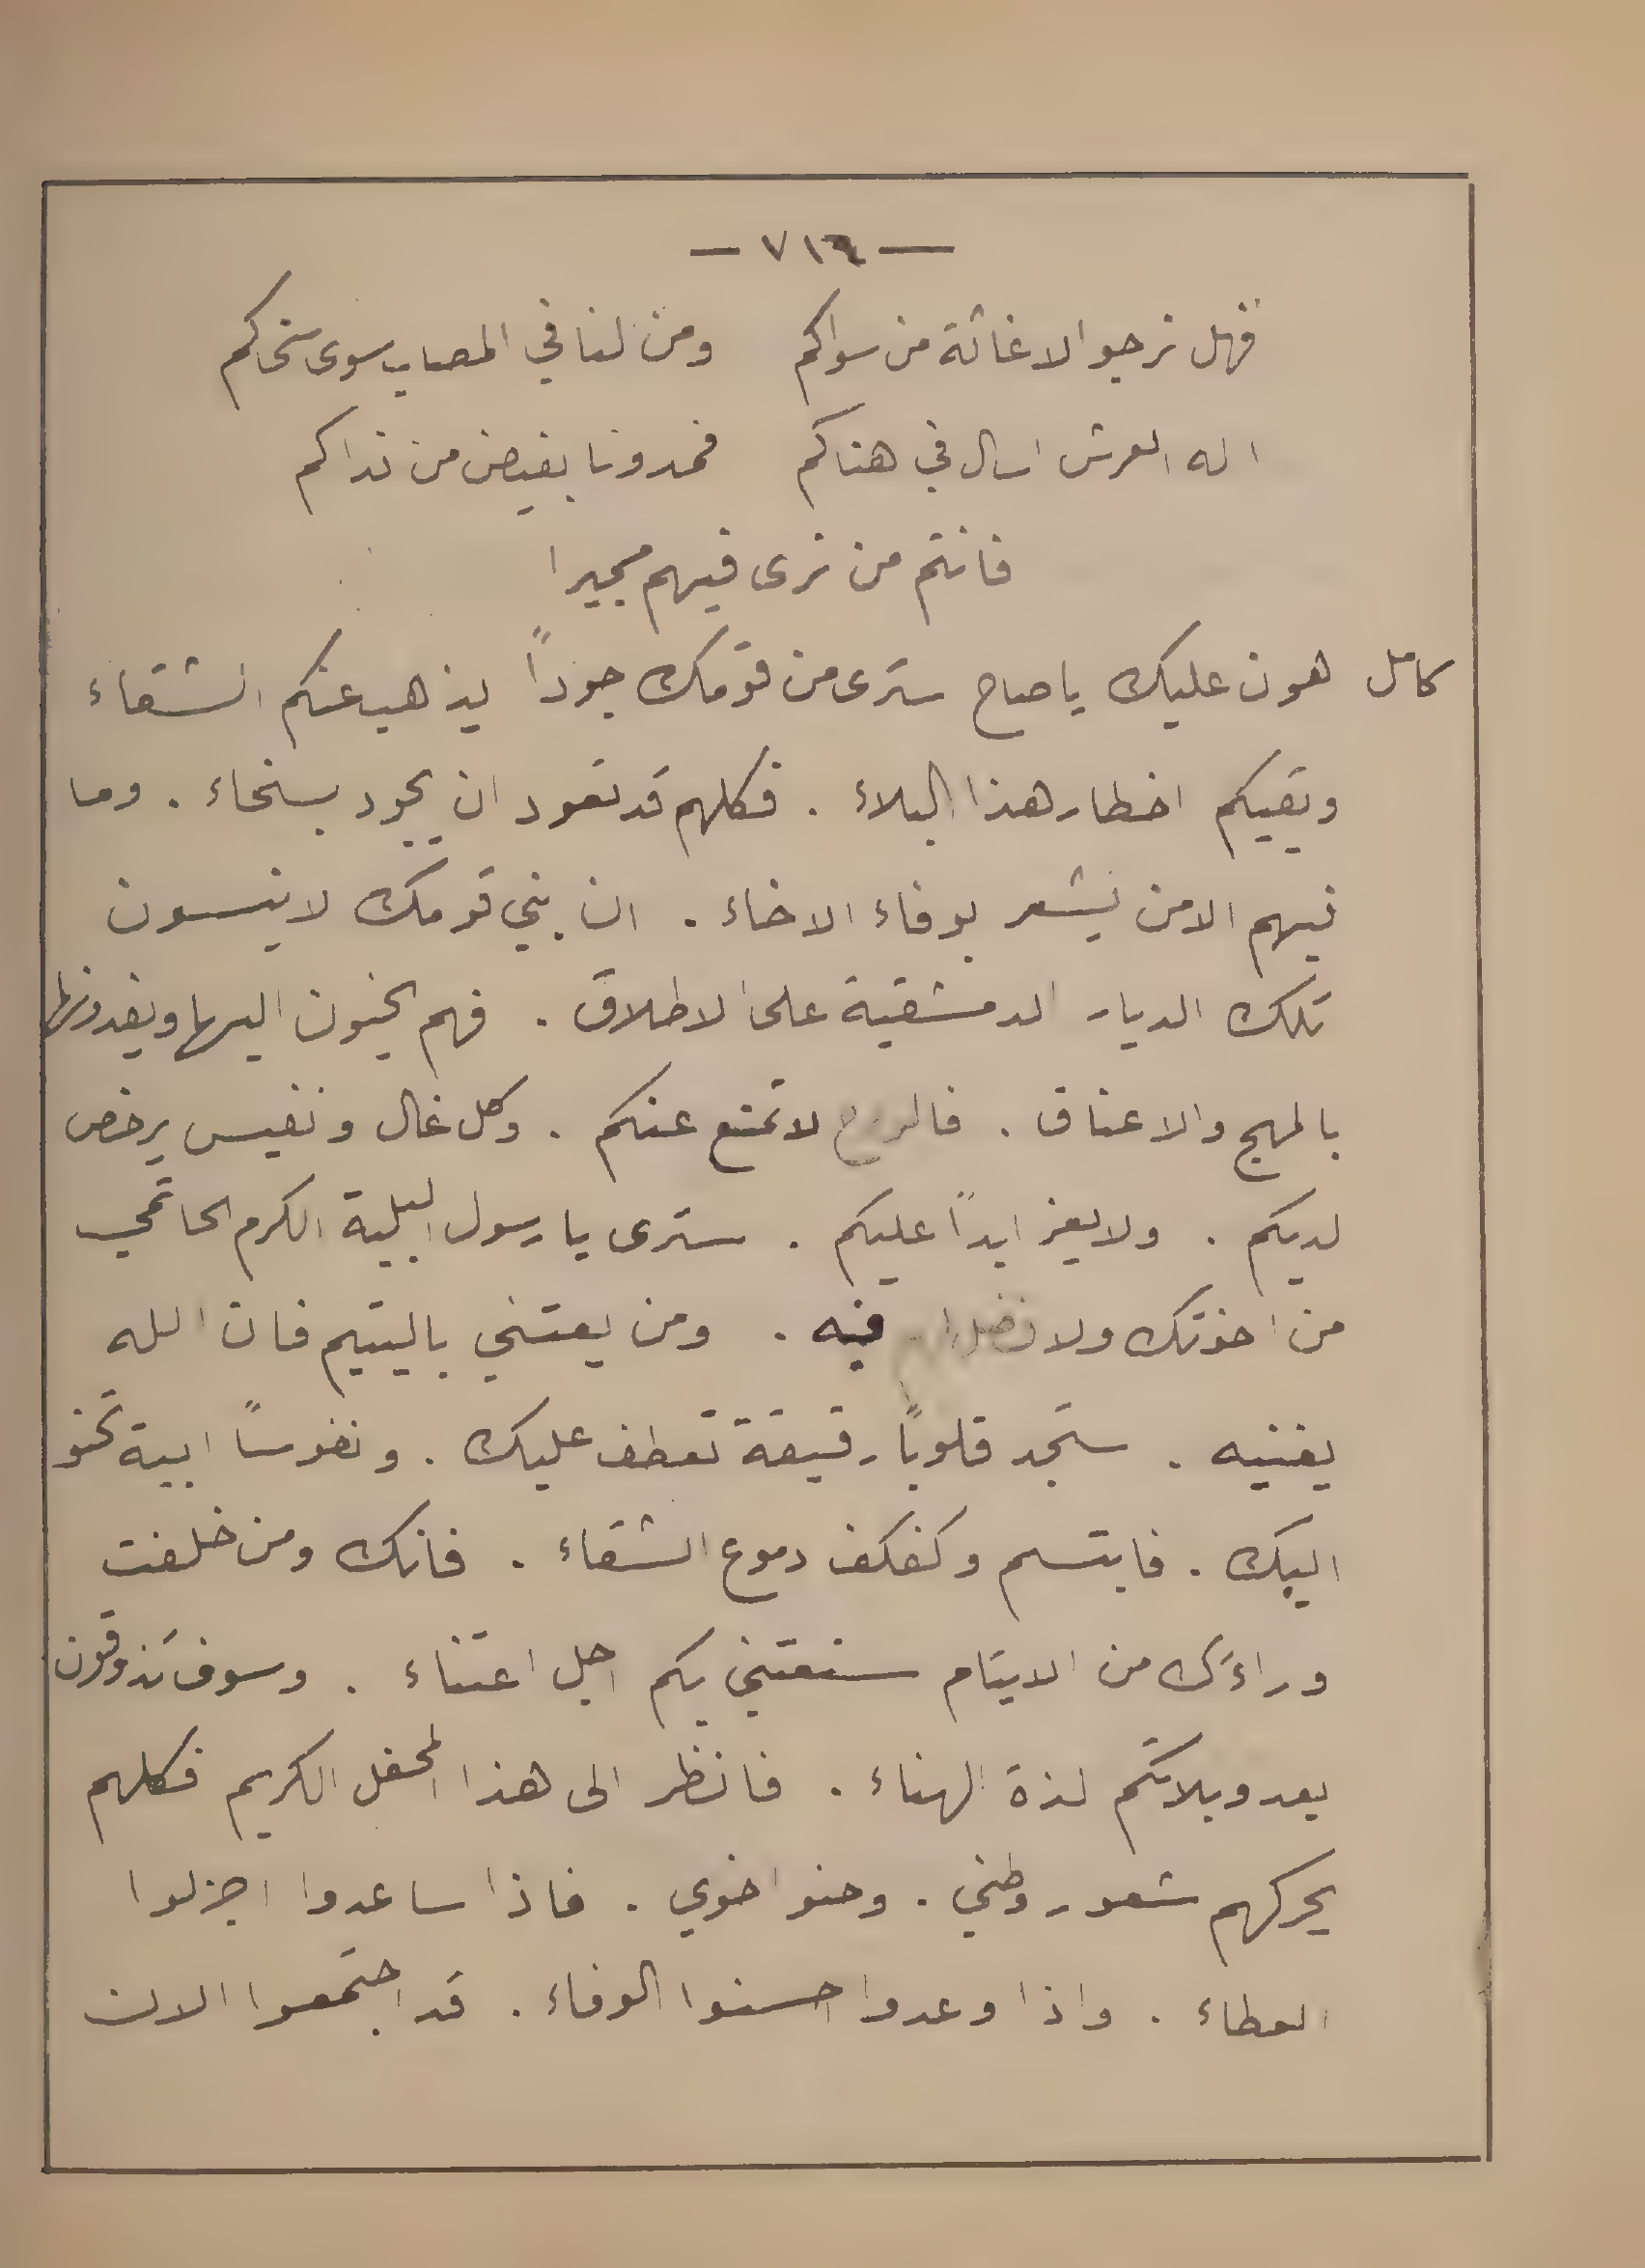 — ٧١٤ —
فهل نرجو الاغاثة من سواكم ومن لنا في المصاب سوى سخاكم
اله العرش اسال في هناكم فمدونا بفيض من نداكم
فانتم من نرى فيهم مجيرا
كامل هون عليك يا صاح سترى من قومك جوداً يذهب عنكم الشقاء
ويقيكم اخطار هذا البلاء . فكلهم قد تعود ان يجود بسخاء . وما
فيهم الا من يشعر بوفاء الاخاء . ان بني قومك لا ينسون
تلك الديار الدمشقية على الاطلاق . فهم يحنون اليها ويفدونها
بالمهج والاعناق . فالروح لا تمنع عنكم . وكل غال ونفيس يرخص
لديكم . ولا يعز ابداً عليكم . سترى يا رسول البلية الكرم الحاتمي
من اخوتك ولا فيه . ومن يعتني باليتيم فان الله
يغنيه . ستجد قلوباً رقيقة تعطف عليك . ونفوساً ابية تحنو
اليك . فابتسم وكفكف دموع الشقاء . فانك ومن خلفت
وراءك من الايتام سنعتني بكم اجل اعتناء . وسوف تذوقون
بعد وبلاتكم لذة الهناء . فانظر الى هذا المحفل الكريم فكلهم
يحركهم شعور وطني . وحنو اخوي . فاذا ساعدوا اجزلوا
العطاء . واذا وعدوا احسنوا الوفاء . قد اجتمعوا الان